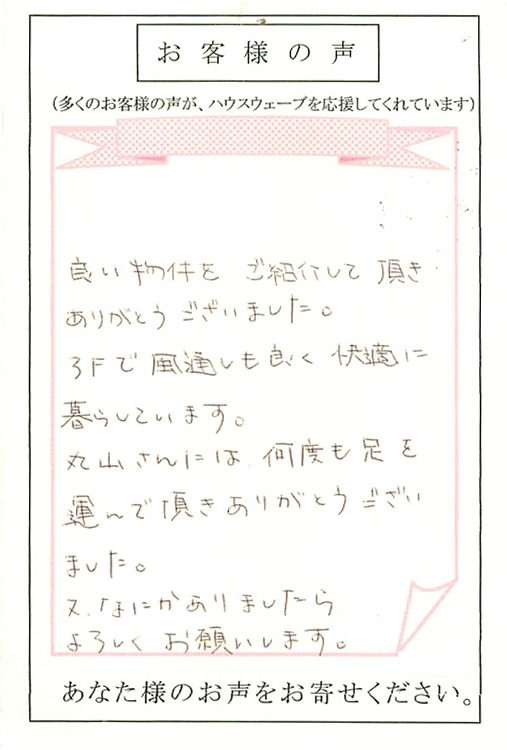 お客様の声
（多くのお客様の声が、ハウスウェーブを応援してくれています）
良い物件を ご紹介して 頂き
ありがとうございました。
3Fで風通しも良く 快適に
暮らしています。
丸山さんには 何度も足を
運んで頂きありがとうござい
ました。
又、なにかありましたら
よろしくお願いします。
あなた様のお声をお寄せください。